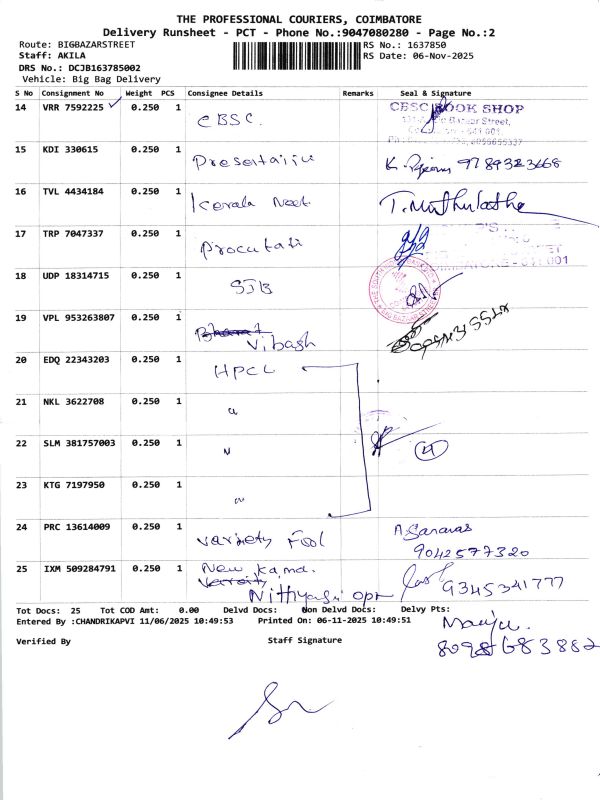 THE PROFESSIONAL COURIERS, COIMBATORE
Delivery Runsheet - PCT - Phone No.:9047080280 - Page No.:2
Route: BIGBAZARSTREET
Staff: AKILA
DRS No.: DCJB163785002
Vehicle: Big Bag Delivery
RS No.: 1637850
RS Date: 06-Nov-2025
S No Consignment No Weight PCS Consignee Details Remarks Seal & Signature
14 VRR 7592225 ✓ 0.250 1 CBSC. CBSC BOOK SHOP
15 KDI 330615 0.250 1 9789323668
16 TVL 4434184 0.250 1 Kerala T. Muthulatha
17 TRP 7047337 0.250 1
18 UDP 18314715 0.250 1 STB
19 VPL 953263807 0.250 1 Vibash
20 EDQ 22343203 0.250 1 HPCL
21 NKL 3622708 0.250 1 "
22 SLM 381757003 0.250 1 " 4
23 KTG 7197950 0.250 1 "
24 PRC 13614009 0.250 1 Variety Fool A. Saravas
9042577320
25 IXM 509284791 0.250 1 New Kamal
Nithyasri opt 9345341777
Tot Docs: 25 Tot COD Amt: 0.00 Delvd Docs: Non Delvd Docs: Delvy Pts:
Entered By :CHANDRIKAPVI 11/06/2025 10:49:53 Printed On: 06-11-2025 10:49:51
Manju.
Verified By Staff Signature